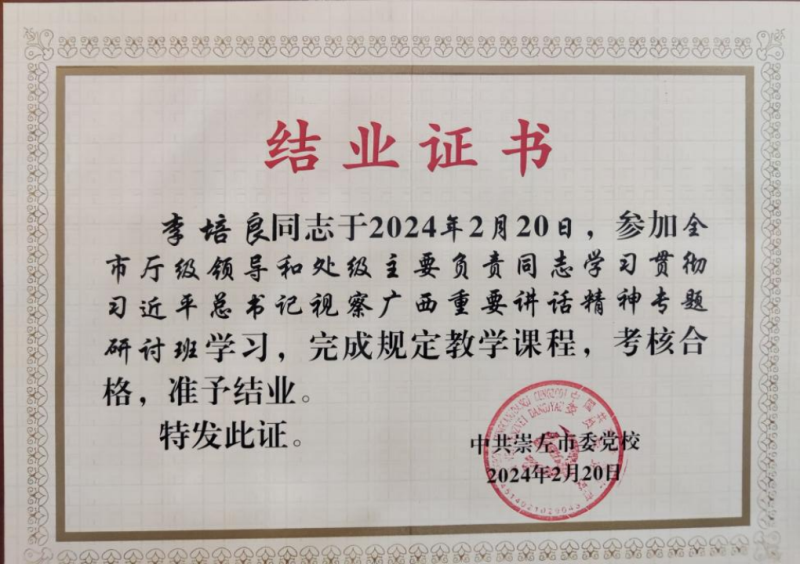 结业证书
李培良同志于2024年2月20日，参加全
市厅级领导和处级主要负责同志学习贯彻
习近平总书记视察广西重要讲话精神专题
研讨班学习，完成规定教学课程，考核合
格，准予结业。
特发此证。
中共崇左市委党校
2024年2月20日